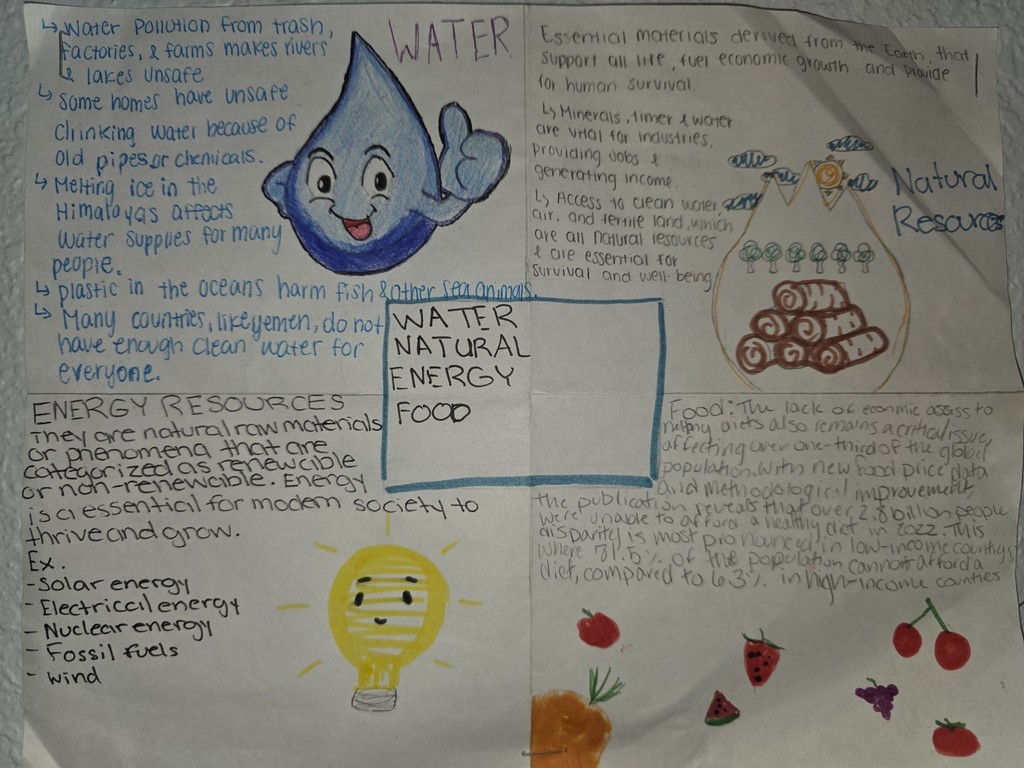 WATER
↳ Water pollution from trash,
factories, & farms makes rivers
& lakes unsafe
↳ Some homes have unsafe
drinking water because of
old pipes or chemicals.
↳ Melting ice in the
Himalayas affects
water supplies for many
people.
↳ plastic in the oceans harm fish & other sea animals.
↳ Many countries, like yemen, do not
have enough clean water for
everyone.
Essential materials derived from the Earth, that
support all life, fuel economic growth and provide
for human survival.
↳ Minerals, timer & water
are vital for industries,
providing jobs &
generating income.
↳ Access to clean water,
air, and fertile land, which
are all natural resources
& are essential for
survival and well-being
Natural
Resources
WATER
NATURAL
ENERGY
FOOD
ENERGY RESOURCES
They are natural raw materials
or phenomena that are
categorized as renewcible
or non-renewcible. Energy
is a essential for modern society to
thrive and grow.
Ex.
- Solar energy
- Electrical energy
- Nuclear energy
- Fossil fuels
- wind
Food: The lack of econmic assess to
diets also remains a critical issue,
affecting over one-third of the global
population. With new food price data
and methodological improvement,
the publication reveals that over 2.8 billion people
were unable to afford a healthy diet in 2022. This
disparity is most pronounced in low-income counties
where 71.5% of the population cannot afford a
diet, compared to 6.3% in high-income counties